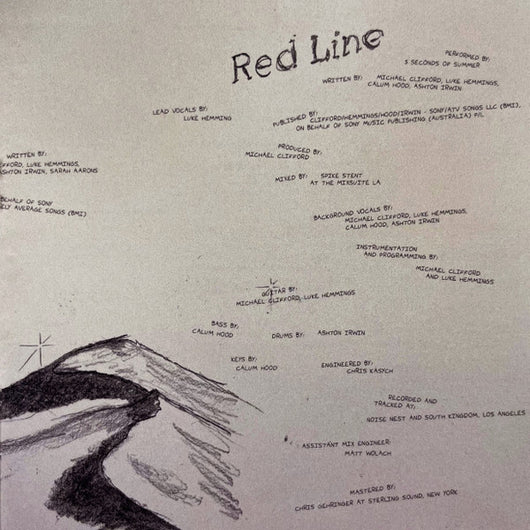 Red Line
PERFORMED BY:
5 SECONDS OF SUMMER
WRITTEN BY: MICHAEL CLIFFORD, LUKE HEMMINGS,
CALUM HOOD, ASHTON IRWIN
LEAD VOCALS BY:
LUKE HEMMING
PUBLISHED BY:
CLIFFORD/HEMMINGS/HOOD/IRWIN - SONY/ATV SONGS LLC (BMI),
ON BEHALF OF SONY MUSIC PUBLISHING (AUSTRALIA) P/L
PRODUCED BY:
MICHAEL CLIFFORD
WRITTEN BY:
CLIFFORD, LUKE HEMMINGS,
ASHTON IRWIN, SARAH AARONS
MIXED BY: SPIKE STENT
AT THE MIXSUITE LA
BEHALF OF SONY
ELY AVERAGE SONGS (BMI)
BACKGROUND VOCALS BY:
MICHAEL CLIFFORD, LUKE HEMMINGS,
CALUM HOOD, ASHTON IRWIN
INSTRUMENTATION
AND PROGRAMMING BY:
MICHAEL CLIFFORD
AND LUKE HEMMINGS
GUITAR BY:
MICHAEL CLIFFORD, LUKE HEMMINGS
BASS BY:
CALUM HOOD
DRUMS BY: ASHTON IRWIN
KEYS BY:
CALUM HOOD
ENGINEERED BY:
CHRIS KASYCH
RECORDED AND
TRACKED AT:
NOISE NEST AND SOUTH KINGDOM, LOS ANGELES
ASSISTANT MIX ENGINEER:
MATT WOLACH
MASTERED BY:
CHRIS GEHRINGER AT STERLING SOUND, NEW YORK